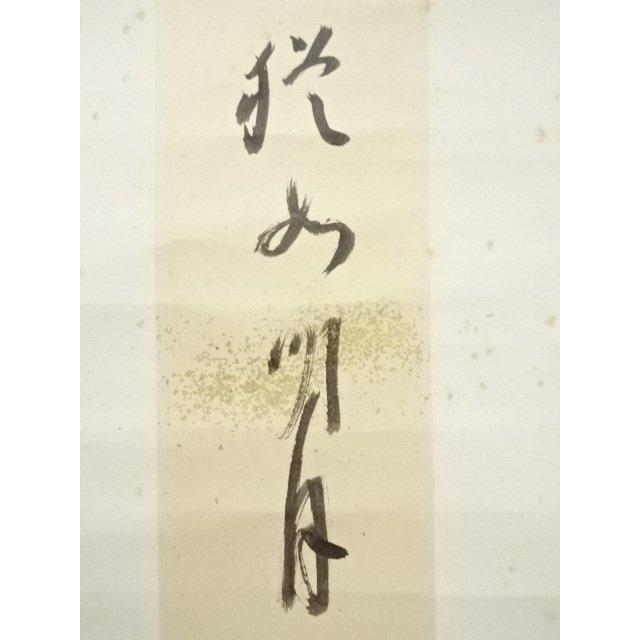 猶如明月